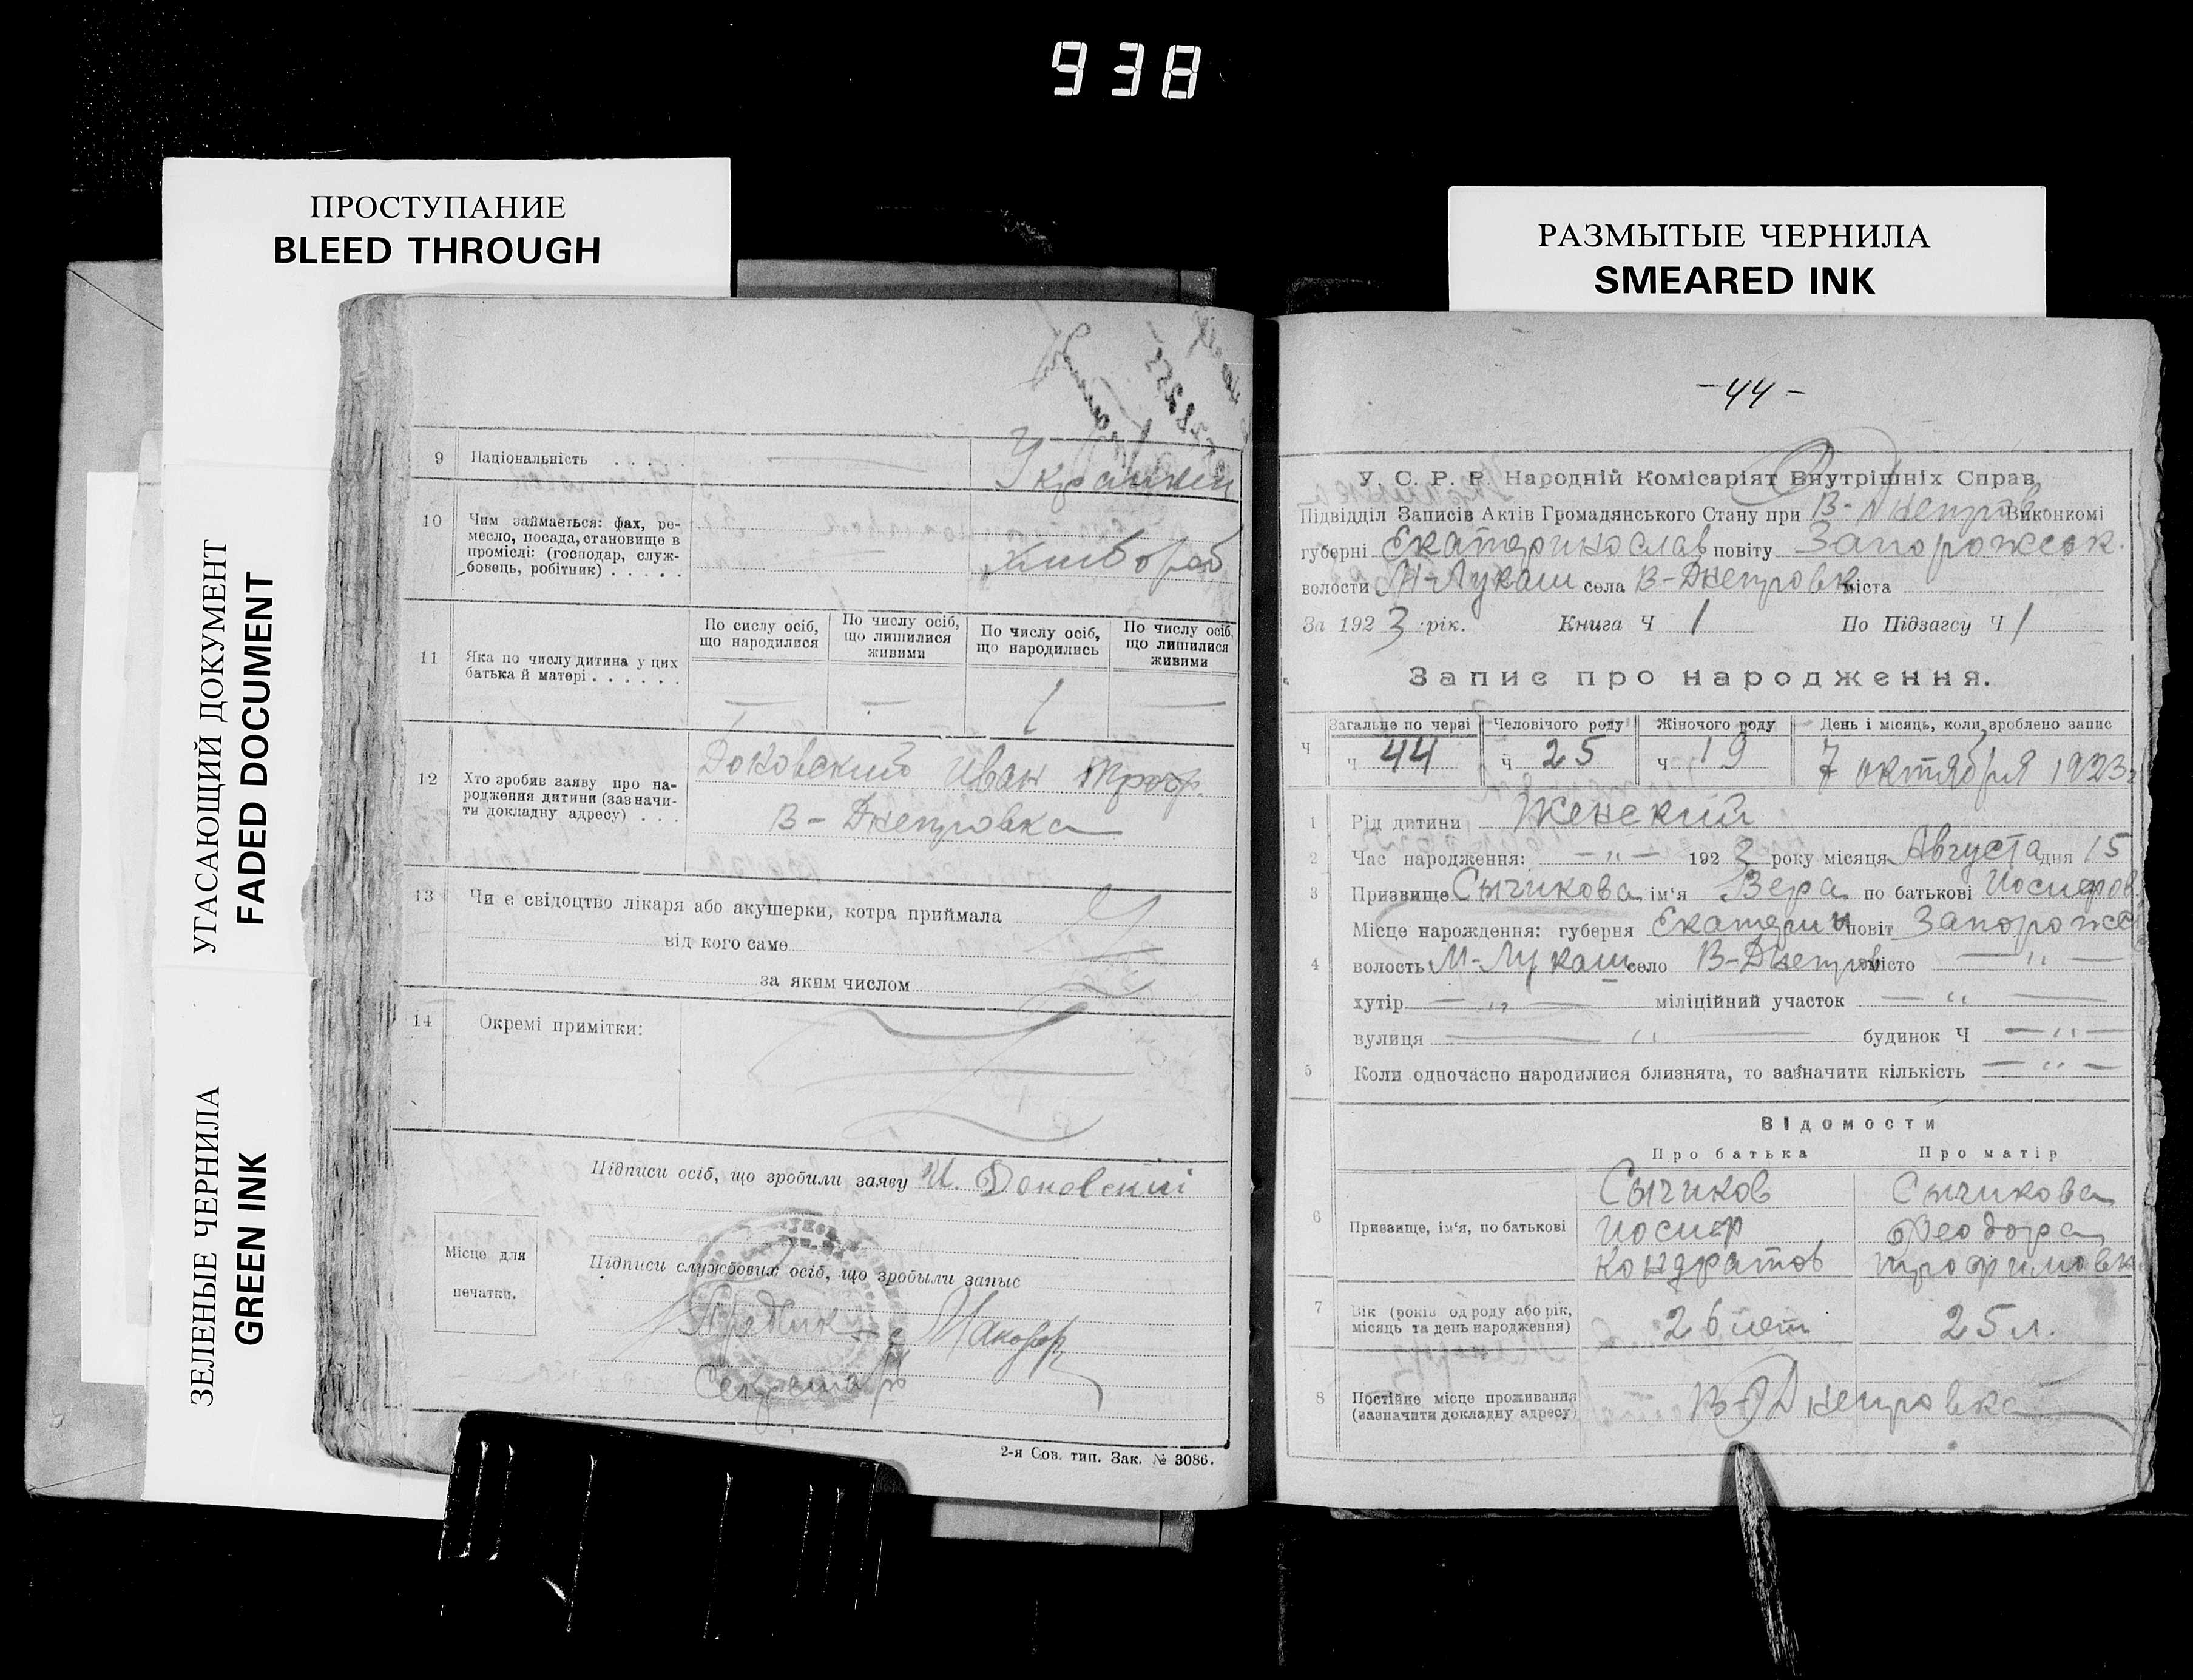 938
ПРОСТУПАНИЕ
BLEED THROUGH
РАЗМЫТЫЕ ЧЕРНИЛА
SMEARED INK
УГАСАЮЩИЙ ДОКУМЕНТ
FADED DOCUMENT
ЗЕЛЕНЫЕ ЧЕРНИЛА
GREEN INK
9 Національність . . . .
10 Чим займається: фах, ре-
месло, посада, становище в
проміслі: (господар, служ-
бовець, робітник) . . . . .
хлибороб
По сислу осіб, що народилися
По числу осіб, що лишилися живими
По числу осіб, що народились
По числу осіб, що лишилися живими
11 Яка по числу дитина у цих
батька й матері . . . . . .
— — 1 —
12 Хто зробив заяву про на-
родження дитини (зазначи-
ти докладну адресу) . . .
Иван Троф.
В-Днепровка
13 Чи є свідоцтво лікаря або акушерки, котра приймала
від кого саме
за яким числом
14 Окремі примітки:
Підписи осіб, що зробили заяву И.
Місце для
печатки.
Підписи службових осіб, що зробыли запыс
Секретарь
2-я Сов. тип. Зак. № 3086.
-44-
У. С. Р. Р. Народній Комісаріят Внутрішніх Справ,
Підвідділ Записів Актів Громадянського Стану при В-Днепров Виконкомі
губерні Екатеринослав повіту Запорожск.
волости М-Лукаш села В-Днепровк міста
За 1923 рік. Книга Ч 1 По Підзагсу Ч 1
Запис про народження.
Загальне по черві Человічого роду Жіночого роду День і місяць, коли зроблено запис
Ч Ч 44 Ч 25 Ч 19 7 октября 1923 г
1 Рід дитини Женский
2 Час народження: — „ — 1923 року місяця Августа дня 15
3 Призвище Сычикова ім'я Вера по батькові Иосифов
Місце нарождення: губерня Екатерин повіт Запорожс
4 волость М-Лукаш село В-Днепров місто — „ —
хутір — „ — міліційний участок — „ —
вулиця — „ — будинок Ч — „ —
5 Коли одночасно народилися близнята, то зазначити кількість — „ —
Відомости
Про батька Про матір
Сычиков Сычикова
6 Призвище, ім'я, по батькові Иосиф Феодора
Кондратов Трофимовн
7 Вік (років од роду або рік,
місяць та день народження) 26 лет 25 л.
8 Постійне місце проживання
(зазначити докладну адресу) В-Днепровка